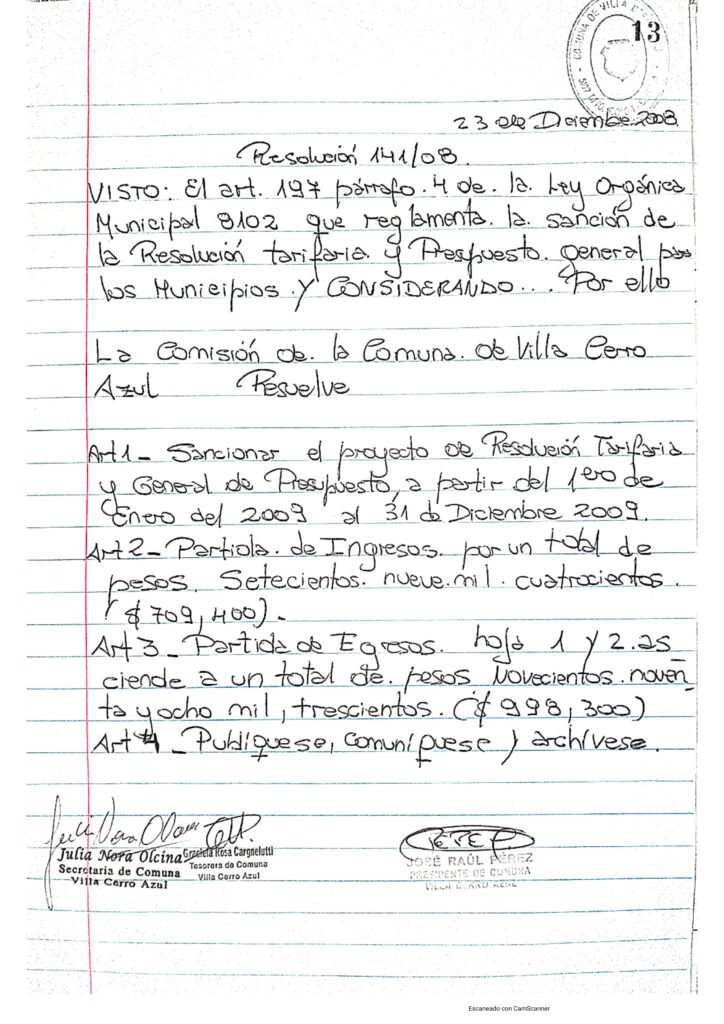 COMUNA DE VILLA
13
23 de Diciembre 2008
Resolución 141/08.
VISTO: El art. 197 párrafo. 4 de. la. Ley Orgánica
Municipal 8102 que reglamenta. la. sanción de
la Resolución tarifaria y Prespuesto. general para
los Municipios. Y CONSIDERANDO... Por ello
La Comisión de. la Comuna. de Villa Cerro
Azul Resuelve
Art 1_ Sancionar el proyecto de Resolución Tarifaria
y General de Presupuesto, a partir del 1ero de
Enero del 2009 al 31 de Diciembre 2009.
Art 2_ Partida. de Ingresos. por un total de
pesos. Setecientos. nueve. mil. cuatrocientos.
($ 709,400).-
Art 3_ Partida de Egresos. hoja 1 y 2. as
ciende a un total de. pesos Novecientos. noven
ta y ocho mil, trescientos. ($ 998,300)
Art 4_ Publíquese, comuníquese y archívese.
Julia Nora Olcina
Secretaria de Comuna
Villa Cerro Azul
Graciela Rosa Cargnelutti
Tesorera de Comuna
Villa Cerro Azul
PEREZ
JOSÉ RAÚL PÉREZ
PRESIDENTE DE COMUNA
VILLA CERRO AZUL
Escaneado con CamScanner